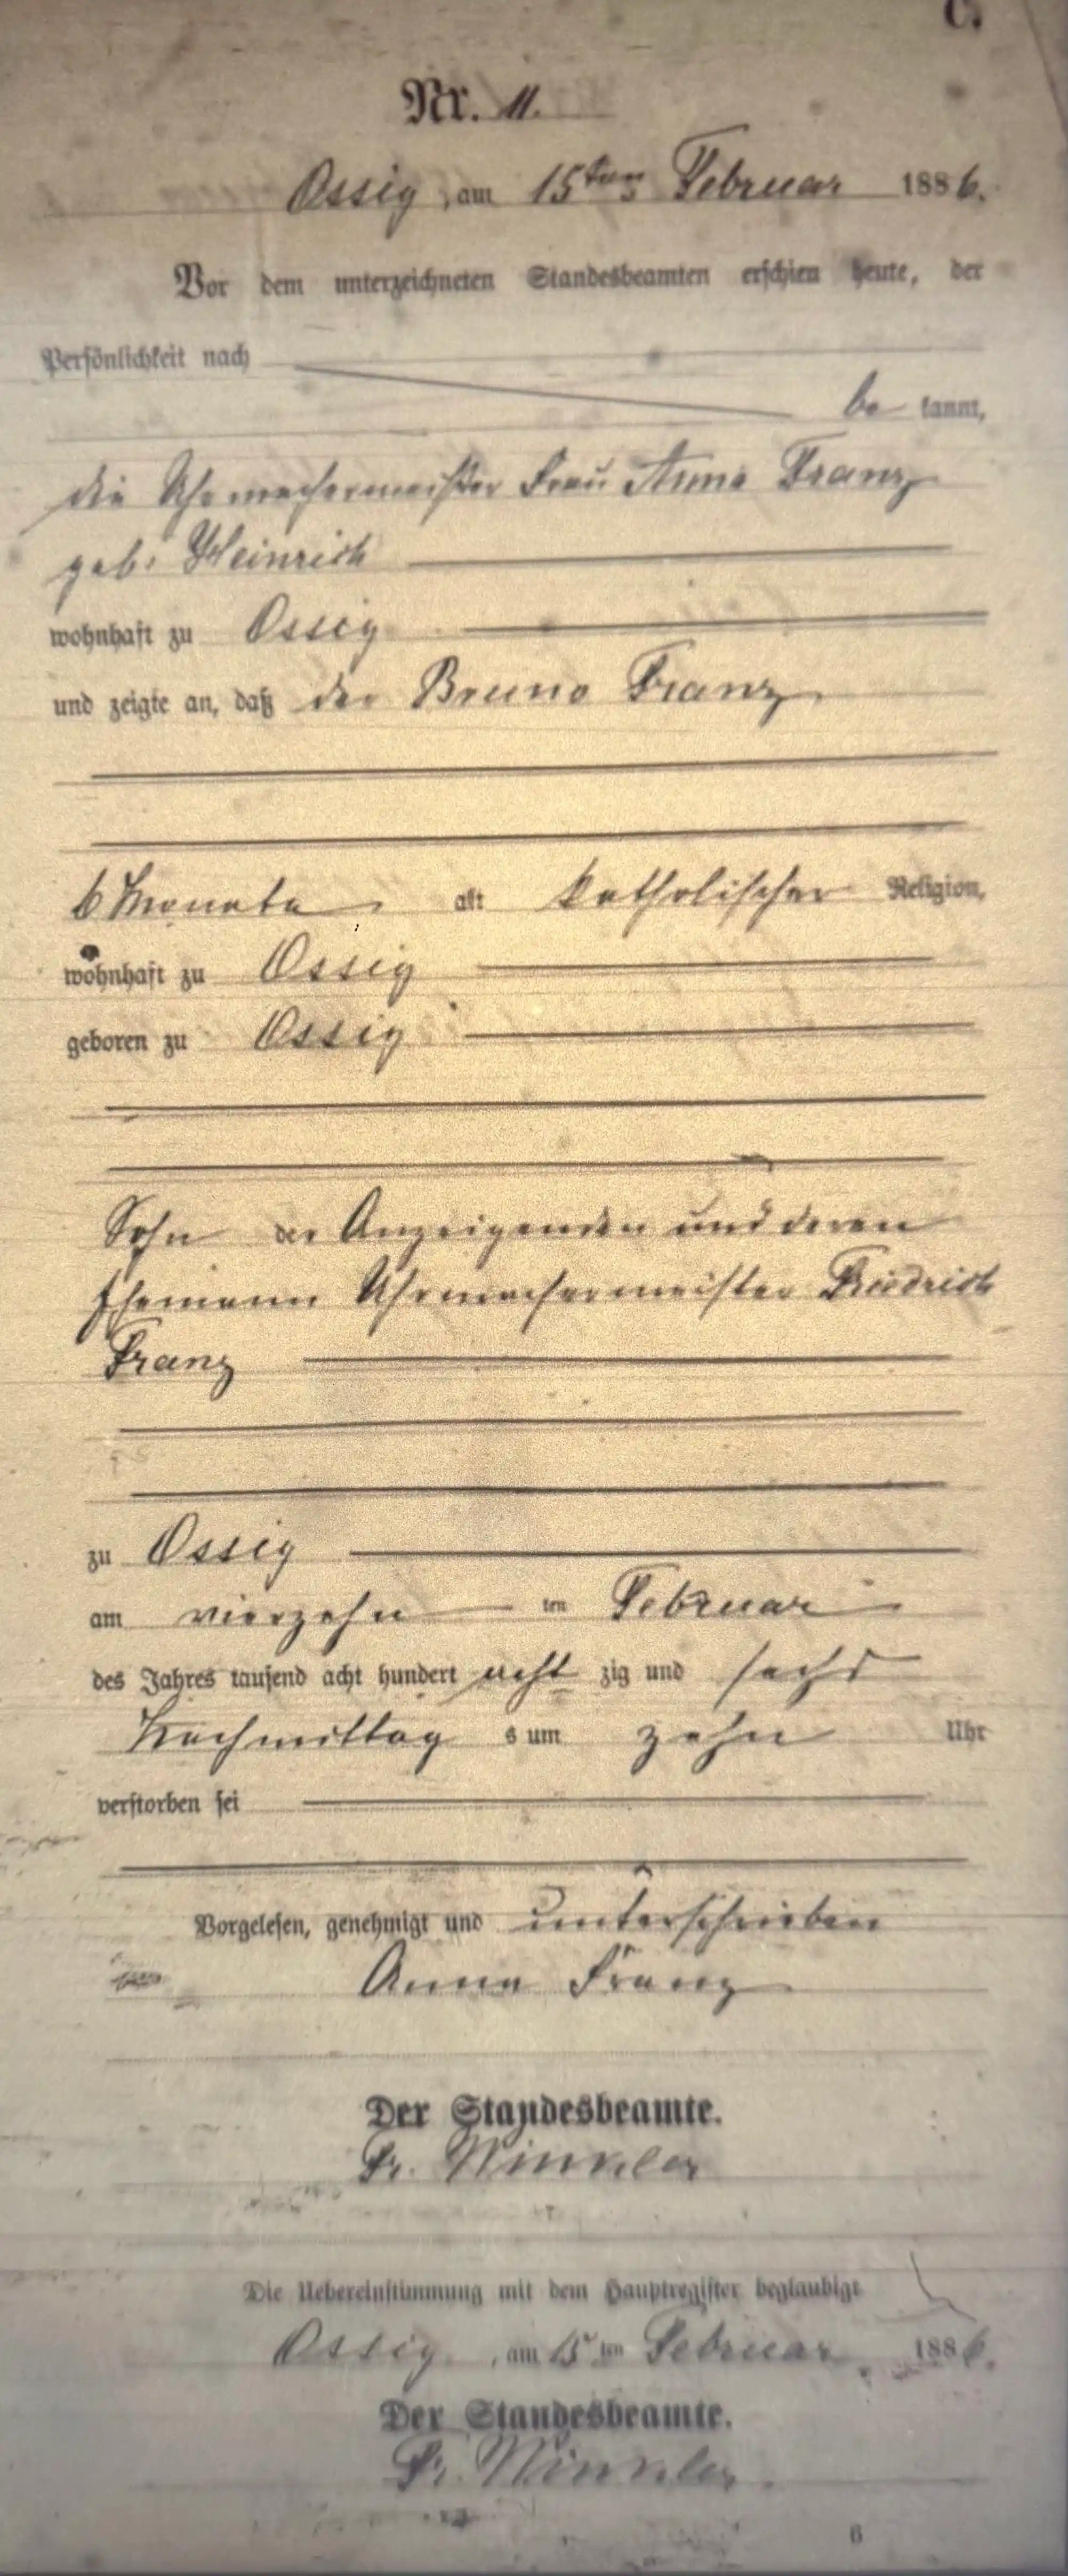 C.
Nr. 11.
Ossig, am 15ten Februar 1886.
Vor dem unterzeichneten Standesbeamten erschien heute, der
Persönlichkeit nach
be kannt,
die Uhrmachermeister Frau Anna Franz
geb. Heinrich
wohnhaft zu Ossig
und zeigte an, daß der Bruno Franz
6 Monate alt katholischer Religion,
wohnhaft zu Ossig
geboren zu Ossig
Sohn der Anzeigenden und deren
Ehemann Uhrmachermeister Friedrich
Franz
zu Ossig
am vierzehn ten Februar
des Jahres tausend acht hundert acht zig und sechs
Nachmittag s um zehn Uhr
verstorben sei
Vorgelesen, genehmigt und unterschrieben
Anna Franz
Der Standesbeamte.
Fr. Winkler
Die Uebereinstimmung mit dem Hauptregister beglaubigt
Ossig, am 15 ten Februar 1886.
Der Standesbeamte.
Fr. Winkler.
6